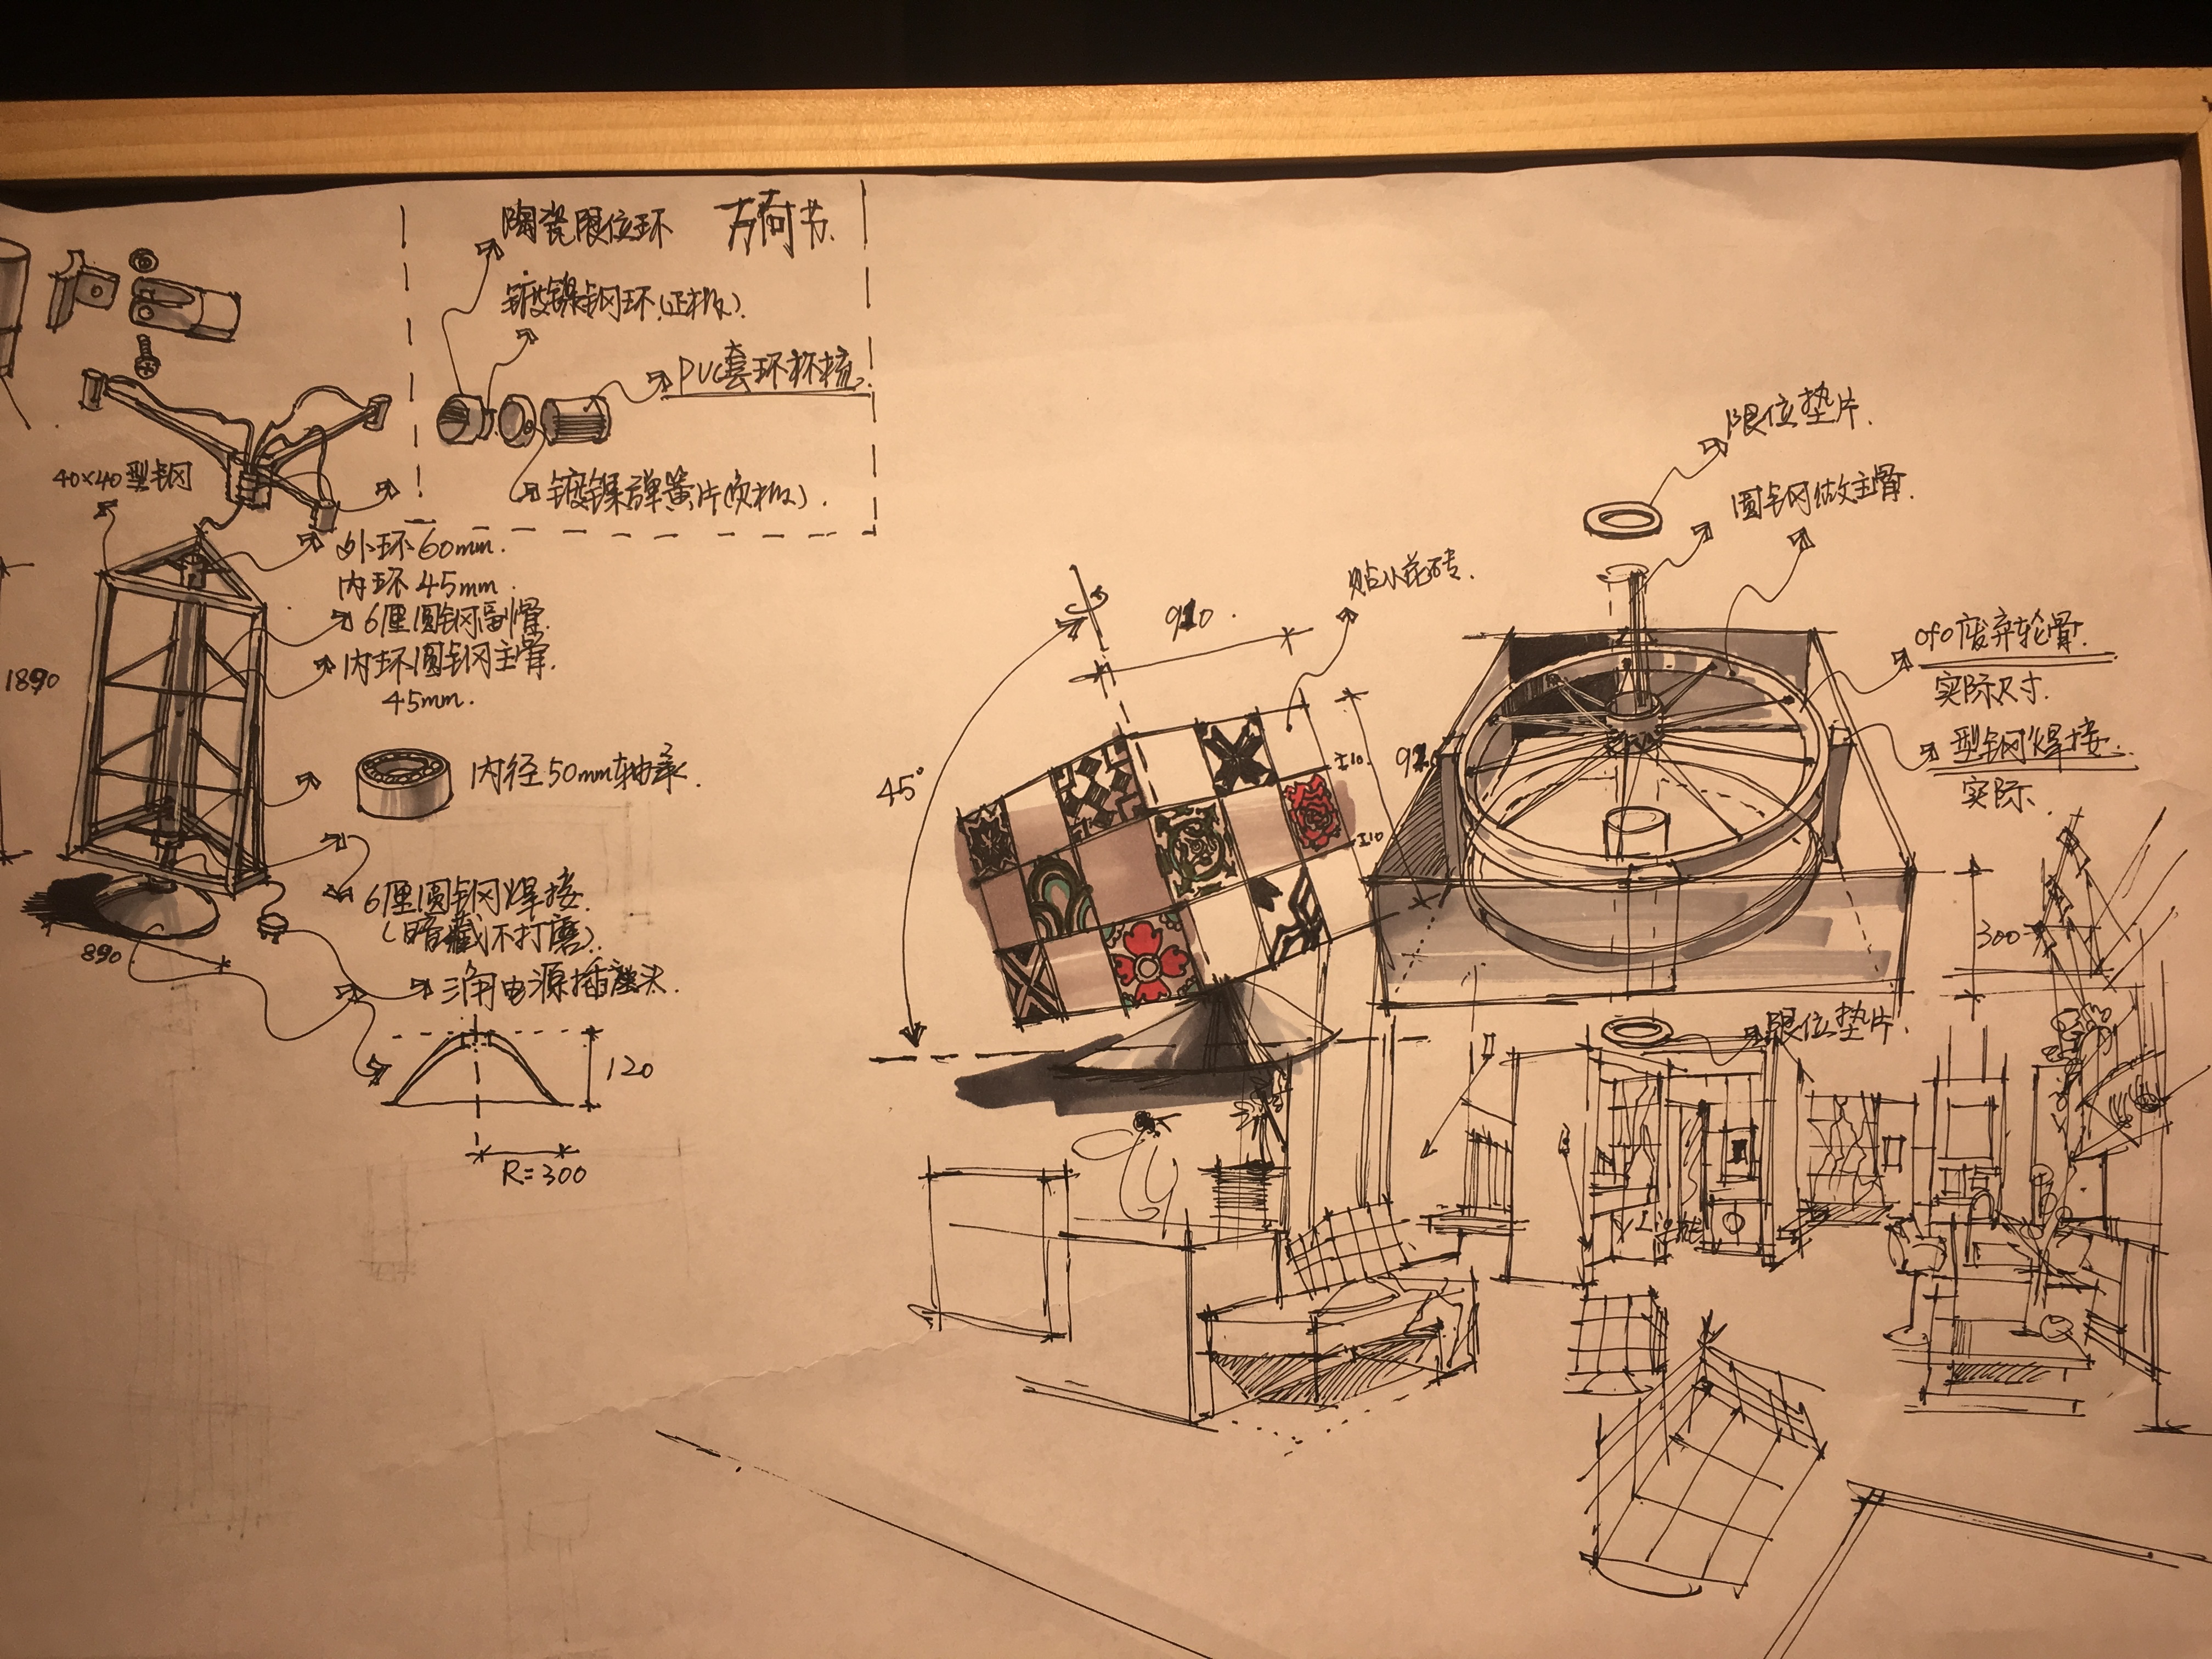 陶瓷限位环 万向节.
镀镍钢环(正极).
PVC套环
镀镍弹簧片(负极).
40×40型钢
外环60mm.
内环45mm.
6厘圆钢副骨.
内环圆钢主骨.
45mm.
1890
内径50mm轴承.
6厘圆钢焊接.
(暗藏不打磨).
890.
三角电源插座头.
120
R=300
45°
910.
贴小花砖.
±10.
±10
限位垫片.
圆钢做主骨.
ofo废弃轮骨.
实际尺寸.
型钢焊接.
实际.
300
限位垫片.